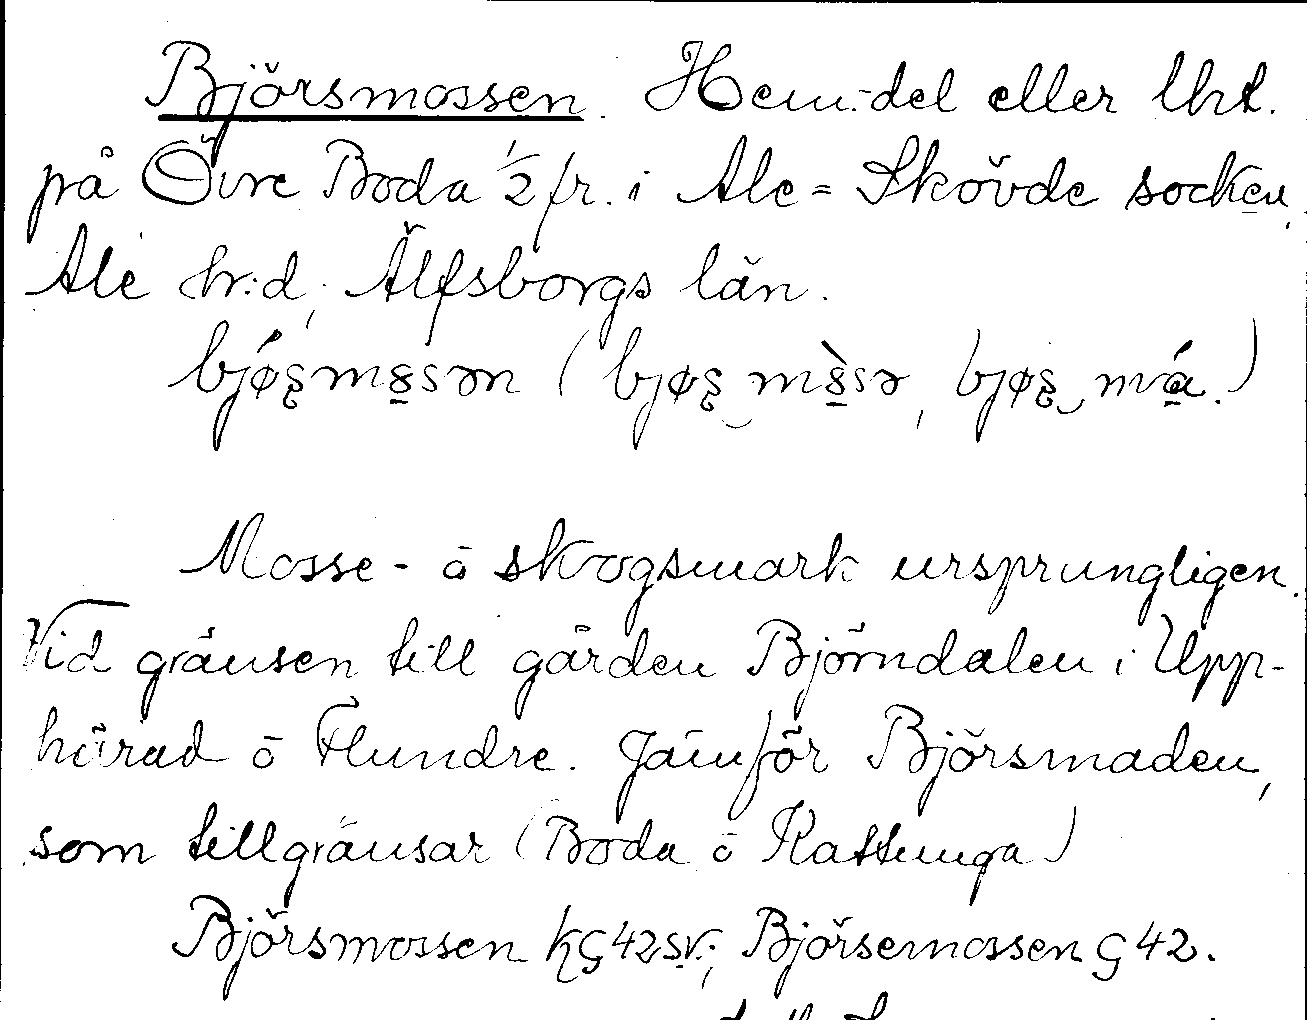 Björsmossen. Hem.-del eller lht.
på Övre Boda 1/2 fr. i Ale-Skövde socken,
Ale hr:d, Älfsborgs län.
Mosse- ō skogsmark ursprungligen.
Vid gränsen till gården Björndalen i Upp-
härad ō Flundre. Jämför Björsmaden,
som tillgränsar (Boda ō Kattunga)
Björsmossen kG42sv.; Björsemossen G 42.